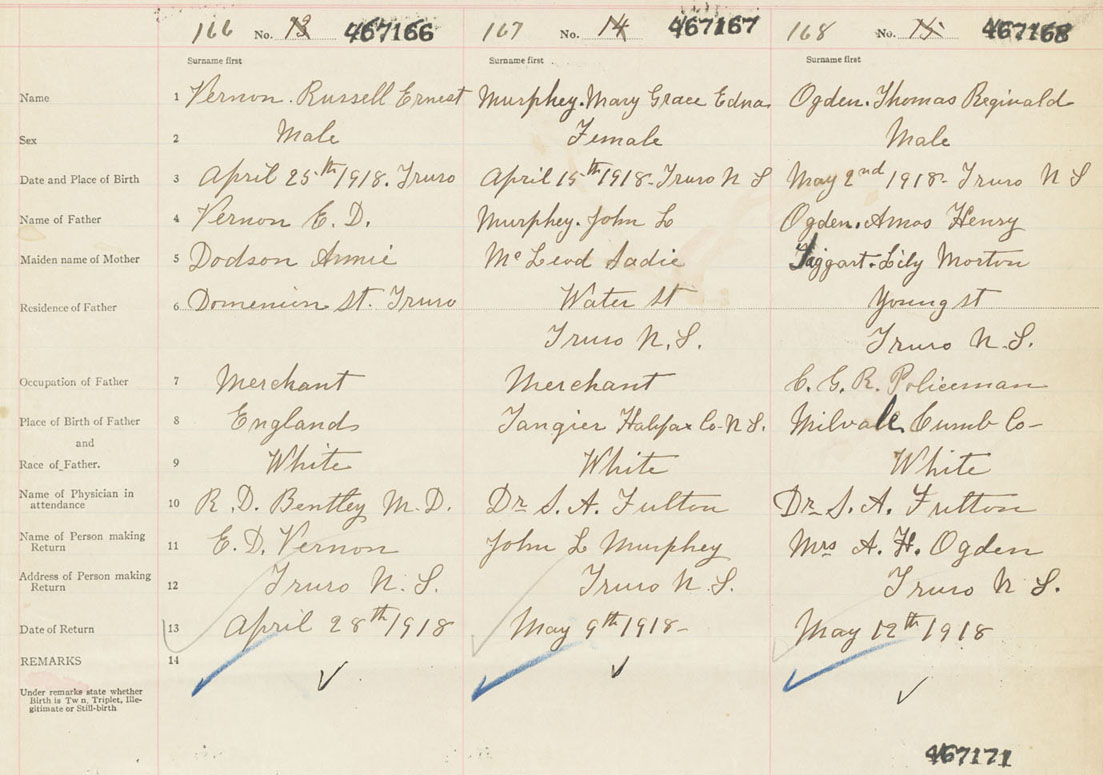 166 No. 13 467166 167 No. 14 467167 168 No. 15 467168
Surname first Surname first Surname first
Name 1 Vernon. Russell Ernest Murphey. Mary Grace Edna Ogden. Thomas Reginald
Sex 2 Male Female Male
Date and Place of Birth 3 April 25th 1918. Truro April 15th 1918- Truro N S May 2nd 1918- Truro N S
Name of Father 4 Vernon E. D. Murphey. John L Ogden. Amos Henry
Maiden name of Mother 5 Dodson Annie Mc Leod Sadie Taggart. Lily Morton
Residence of Father 6 Domenion St. Truro Water St Young st
Truro N.S. Truro N.S.
Occupation of Father 7 Merchant Merchant C. G. R. Policeman
Place of Birth of Father 8 Englands Tangier Halifax Co- N.S. Milvale Cumb Co-
and
Race of Father. 9 White White White
Name of Physician in
attendance 10 R. D. Bentley M.D. Dr S. A. Fulton Dr S. A. Fulton
Name of Person making
Return 11 E. D. Vernon John L Murphey Mrs A. H. Ogden
Address of Person making
Return 12 Truro N.S. Truro N.S. Truro N S.
Date of Return 13 April 28th 1918 May 9th 1918- May 12th 1918
REMARKS 14
Under remarks state whether
Birth is Tw n, Triplet, Ille-
gitimate or Still-birth
467171